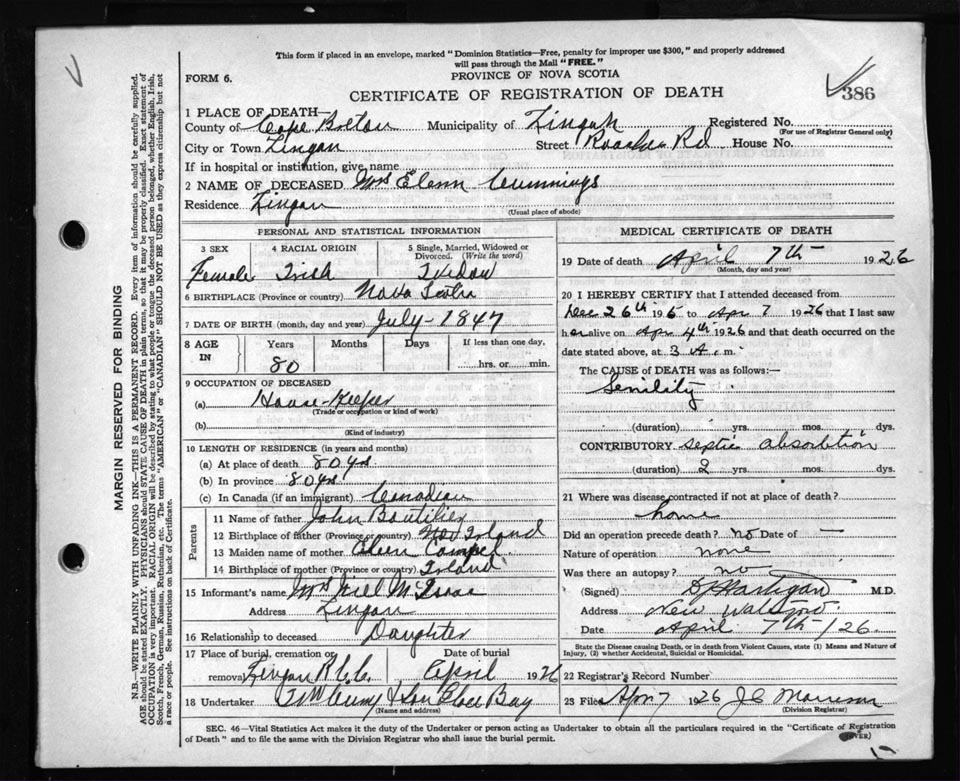 This form if placed in an envelope, marked "Dominion Statistics—Free, penalty for improper use $300," and properly addressed
will pass through the Mail "FREE."
FORM 6.
PROVINCE OF NOVA SCOTIA
CERTIFICATE OF REGISTRATION OF DEATH
386
1 PLACE OF DEATH—
County of Cape Breton Municipality of Lingan Registered No.
(For use of Registrar General only)
City or Town Lingan Street Rd House No.
If in hospital or institution, give name
2 NAME OF DECEASED Mrs Elenn Cummings
Residence Lingan
(Usual place of abode)
PERSONAL AND STATISTICAL INFORMATION
3 SEX 4 RACIAL ORIGIN 5 Single, Married, Widowed or
Divorced. (Write the word)
Female Irish
6 BIRTHPLACE (Province or country) Nova Scotia
7 DATE OF BIRTH (month, day and year) July - 1847
8 AGE IN Years Months Days If less than one day,
80 hrs. or min.
9 OCCUPATION OF DECEASED
(a) House-Keeper
(Trade or occupation or kind of work)
(b)
(Kind of industry)
10 LENGTH OF RESIDENCE (in years and months)
(a) At place of death 80 yrs
(b) In province 80 yrs
(c) In Canada (if an immigrant) Canadian
Parents
11 Name of father John Boutilier
12 Birthplace of father (Province or country)
13 Maiden name of mother
14 Birthplace of mother (Province or country) Irland
15 Informant's name Mrs Will McIsaac
Address Lingan
16 Relationship to deceased Daughter
17 Place of burial, cremation or Date of burial
removal Lingan R.C.C. April 1926
18 Undertaker & Son Glace Bay
(Name and address)
MEDICAL CERTIFICATE OF DEATH
19 Date of death April 7th 1926
(Month, day and year)
20 I HEREBY CERTIFY that I attended deceased from
Dec 26th 1925 to Apr 7 1926 that I last saw
her alive on Apr 4th 1926 and that death occurred on the
date stated above, at 3 A. m.
The CAUSE OF DEATH was as follows:—
Senility
(duration) yrs. mos. dys.
CONTRIBUTORY septic absorbtion
(duration) 2 yrs. mos. dys.
21 Where was disease contracted if not at place of death?
home
Did an operation precede death? no Date of
Nature of operation none
Was there an autopsy? no
(Signed) M.D.
Address New Waterford
Date April 7th/26
State the Disease causing Death, or in Death from Violent Causes, state (1) Means and Nature of
Injury, (2) whether Accidental, Suicidal or Homicidal.
22 Registrar's Record Number
23 Filed Apr 7 1926 J C Morrison
(Division Registrar)
SEC. 46—Vital Statistics Act makes it the duty of the Undertaker or person acting as Undertaker to obtain all the particulars required in the "Certificate of Registration
of Death" and to file the same with the Division Registrar who shall issue the burial permit.
(OVER)
MARGIN RESERVED FOR BINDING
N.B.—WRITE PLAINLY WITH UNFADING INK—THIS IS A PERMANENT RECORD. Every item of information should be carefully supplied.
AGE should be stated EXACTLY. PHYSICIANS should STATE CAUSE OF DEATH in plain terms, so that it may be properly classified. Exact statement of
OCCUPATION is very important. RACIAL ORIGIN will be described by stating to what people or tongue the deceased person belonged, whether English, Irish,
Scotch, French, German, Russian, Ruthenian, etc. The terms "AMERICAN" or "CANADIAN" SHOULD NOT BE USED as they express citizenship but not
a race or people. See instructions on back of Certificate.